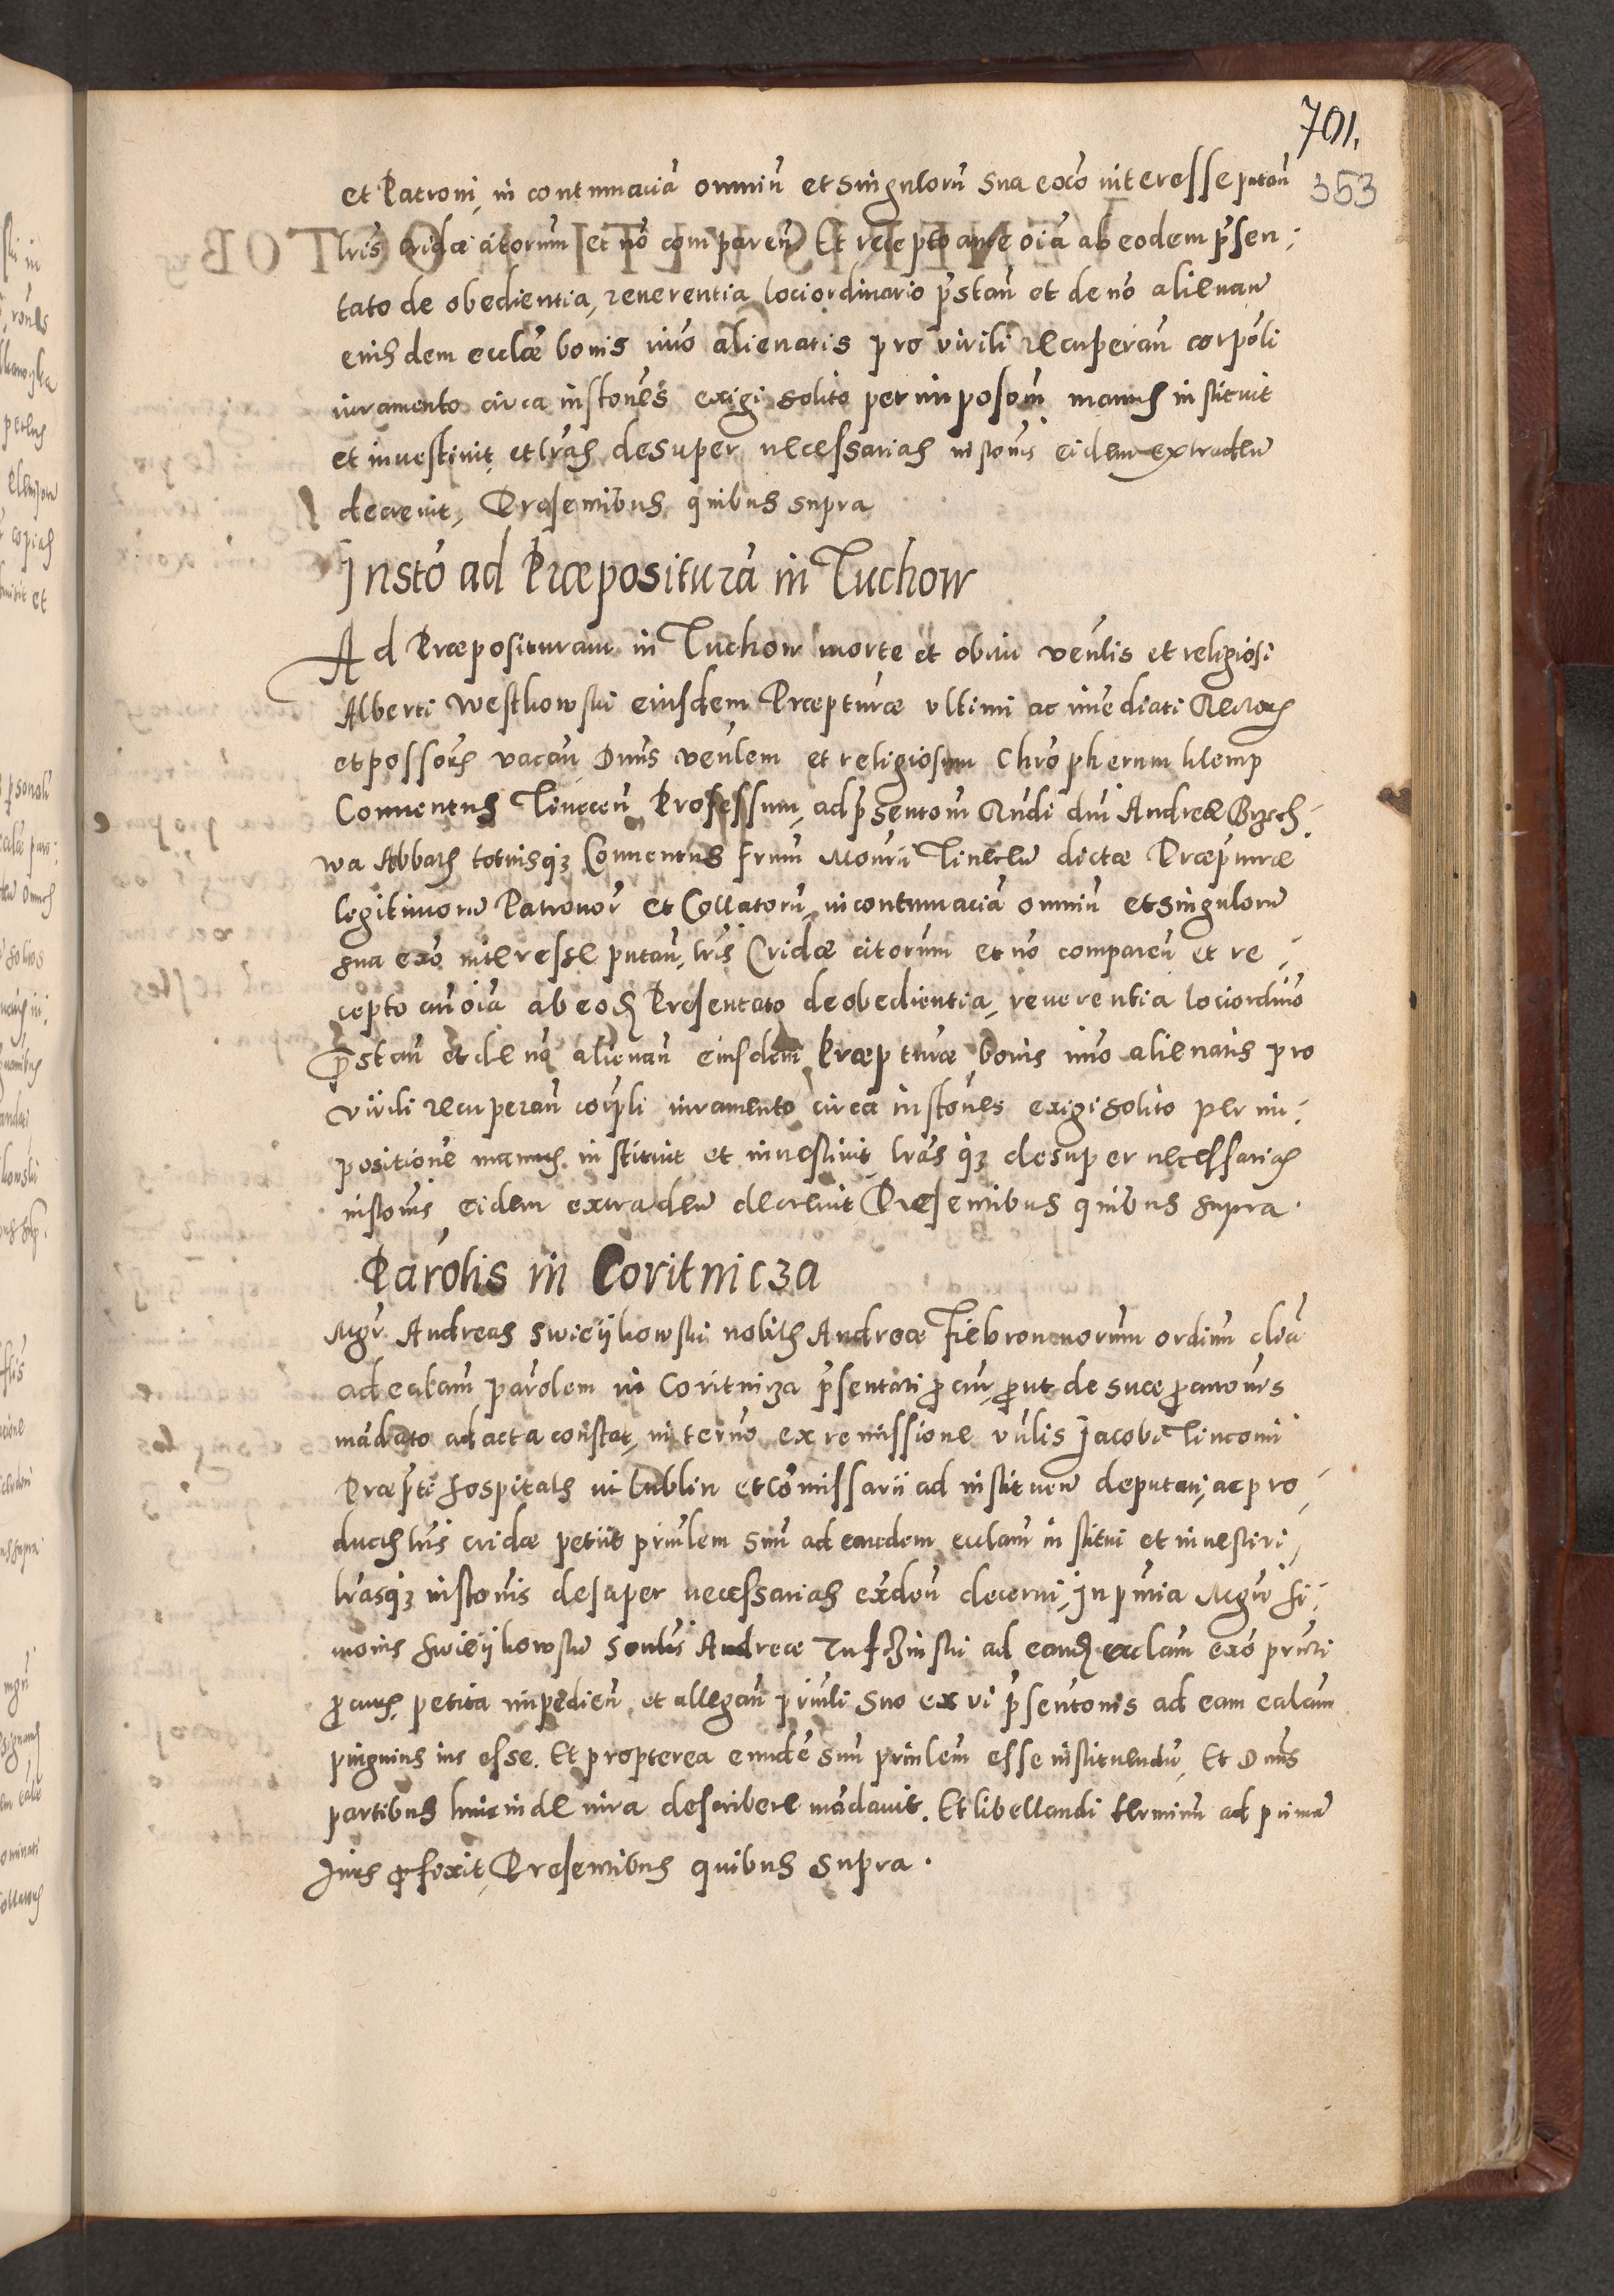 701.
353
et Patroni, in contumaciā omniū et singulorū sua eōo interesse putan̄
lr̄is cridæ citorum et nō comparen̄ Et recepto ante oīa ab eodem p̄sen-
tato de obedientia, reuerentia loci ordinario p̄stan̄ et de nō alienan̄
eiusdem eccl̄æ bonis imo alienatis pro virili recuperan̄ corpōli
iuramento circa instōnes exigi solito per imposōm manus instituit
et inuestiuit, et lr̄as desuper necessarias instōnis eidem extraden̄
decreuit, Præsentibus quibus supra
Instō ad Præpositurā in Tuchow
Ad Præposituram in Tuchow morte et obitu ven̄lis et religiosi
Alberti Westkowski eiusdem Præpturæ vltimi ac im̄ediati Rectoris
et possōris vacan̄ Dn̄us ven̄lem et religiosum Chrōpherum
Conuentus Tinecen̄ Professum, ad p̄sentōm Rn̄di dn̄i Andreæ Brzech-
wa Abbatis totiusqʒ Conuentus fr̄um Mon̄rii Tinecen̄ dictæ Præpturæ
legitimorū Patronor̄ et Collatorū, in contumaciā omniū et singulorū
sua eōo interesse putan̄, lr̄is Cridæ citorum et nō comparen̄ et re-
cepto an̄ oīa ab eod Præsentato de obedientia, reuerentia loci ordin̄o
p̄stan̄ et de nō alienan̄ eiusdem Præpturæ bonis imo alienatis pro
virili recuperan̄ corp̄li iuramento circa instōnes exigi solito per im-
positionē manus instituit et inuestiuit lr̄asqʒ desuper necessarias
instōnis eidem extraden̄ decreuit Præsentibus quibus supra.
Parōlis in Coritnicza
Mgr̄ Andreas Swieijkowski nobilis Andreæ Fiebron minorum ordinū cl̄ia
ad eccl̄am parōlem in Coritnicza p̄sentati procur̄, prout de suæ procurōnis
mādato ad acta constat, in termō ex remissione vn̄lis Jacobi
Præp̄ti hospitalis in Lublin et Cōmissarii ad instituen̄ deputati, ac pro-
ductis lr̄is cridæ petiit prin̄lem suū ad eandem eccl̄am institui et inuestiri
lr̄asqʒ instōnis desuper necessarias exdēn̄ decerni, In pn̄tia Mgr̄i Si-
monis Swieijkowski Andreæ ad eand eccl̄am eōo pn̄tti
procuris, petita impedien̄ et allegan̄ prin̄li suo ex vi p̄sentōnis ad eam eccl̄am
pinguius ius esse. Et propterea eundē suū prin̄lem esse instituendū, Et Dn̄us
partibus hincinde iura describere mādauit. Et libellandi terminū ad primā
Juris præfixit, Præsentibus quibus supra.